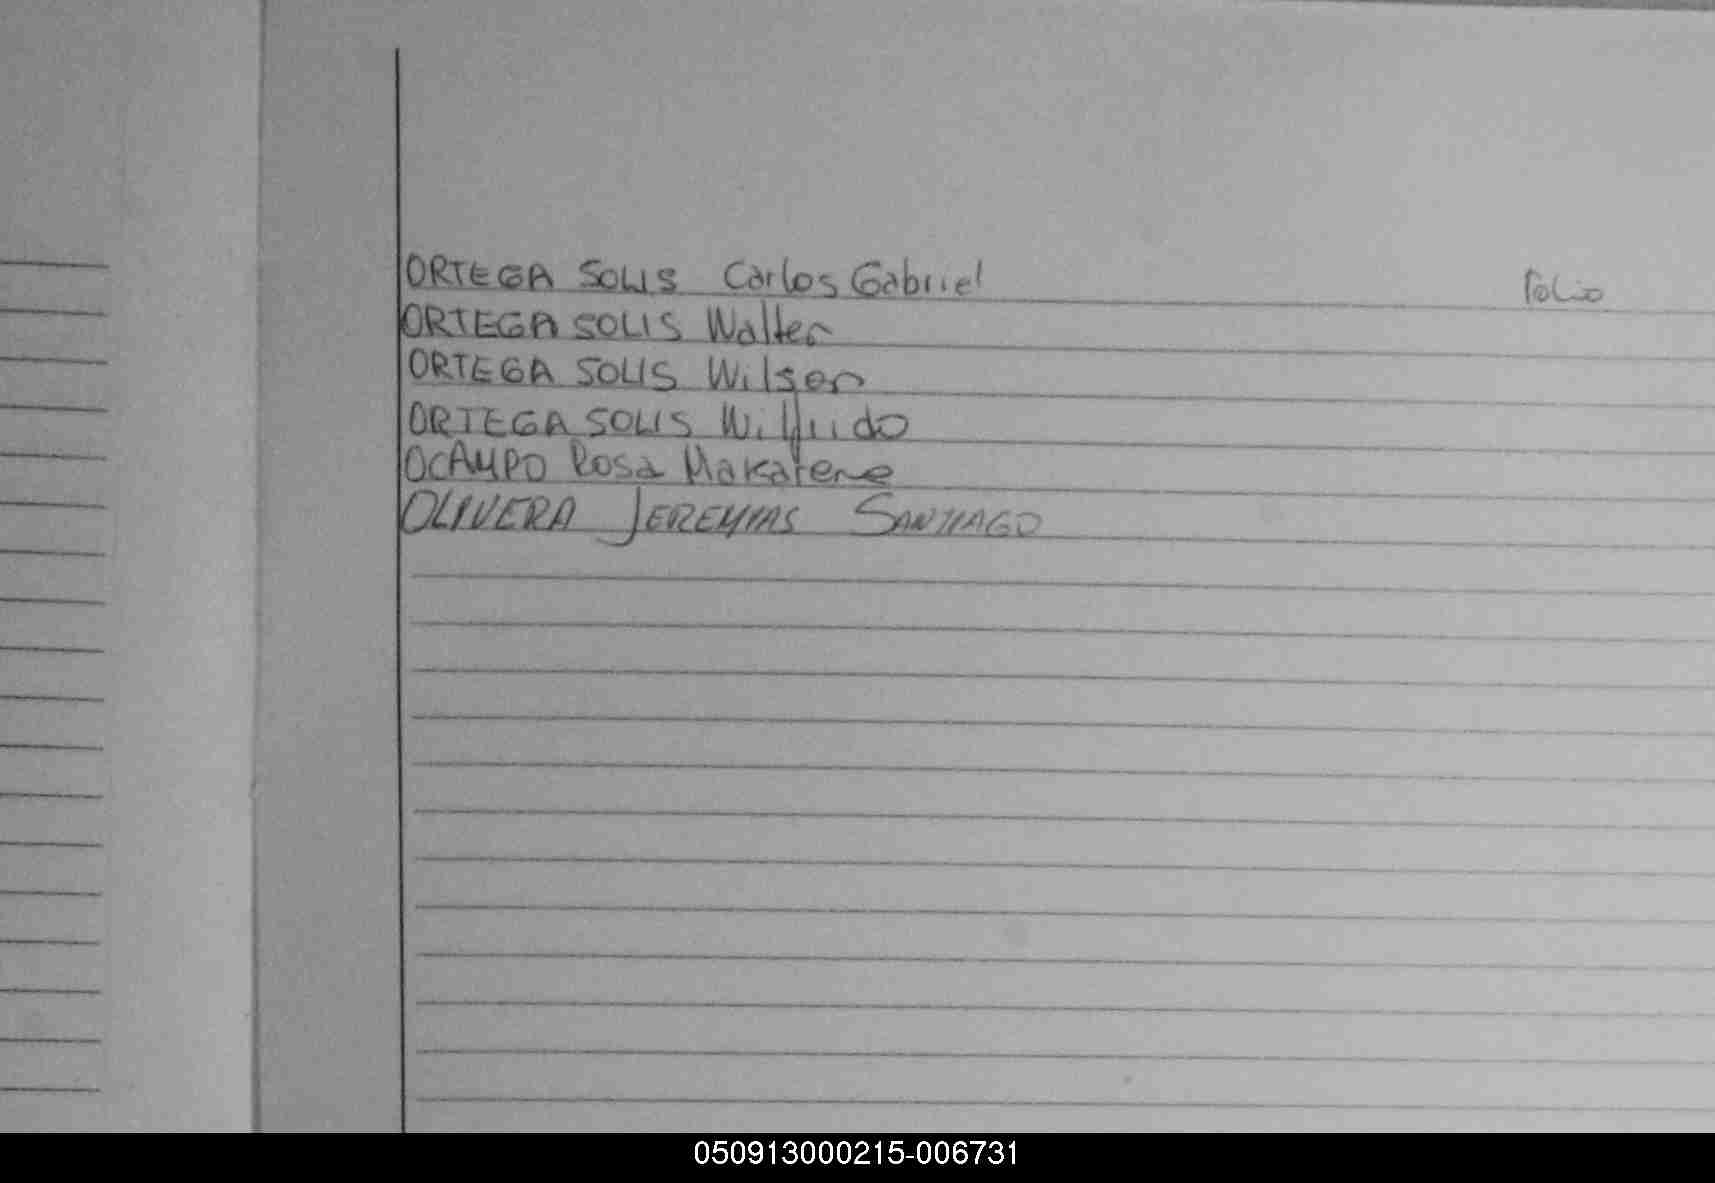 ORTEGA SOLIS Carlos Gabriel Folio
ORTEGA SOLIS Walter
ORTEGA SOLIS Wilson
ORTEGA SOLIS Wilfrido
OCAMPO Rosa Makarene
OLIVERA JEREMIAS SANTIAGO
050913000215-006731